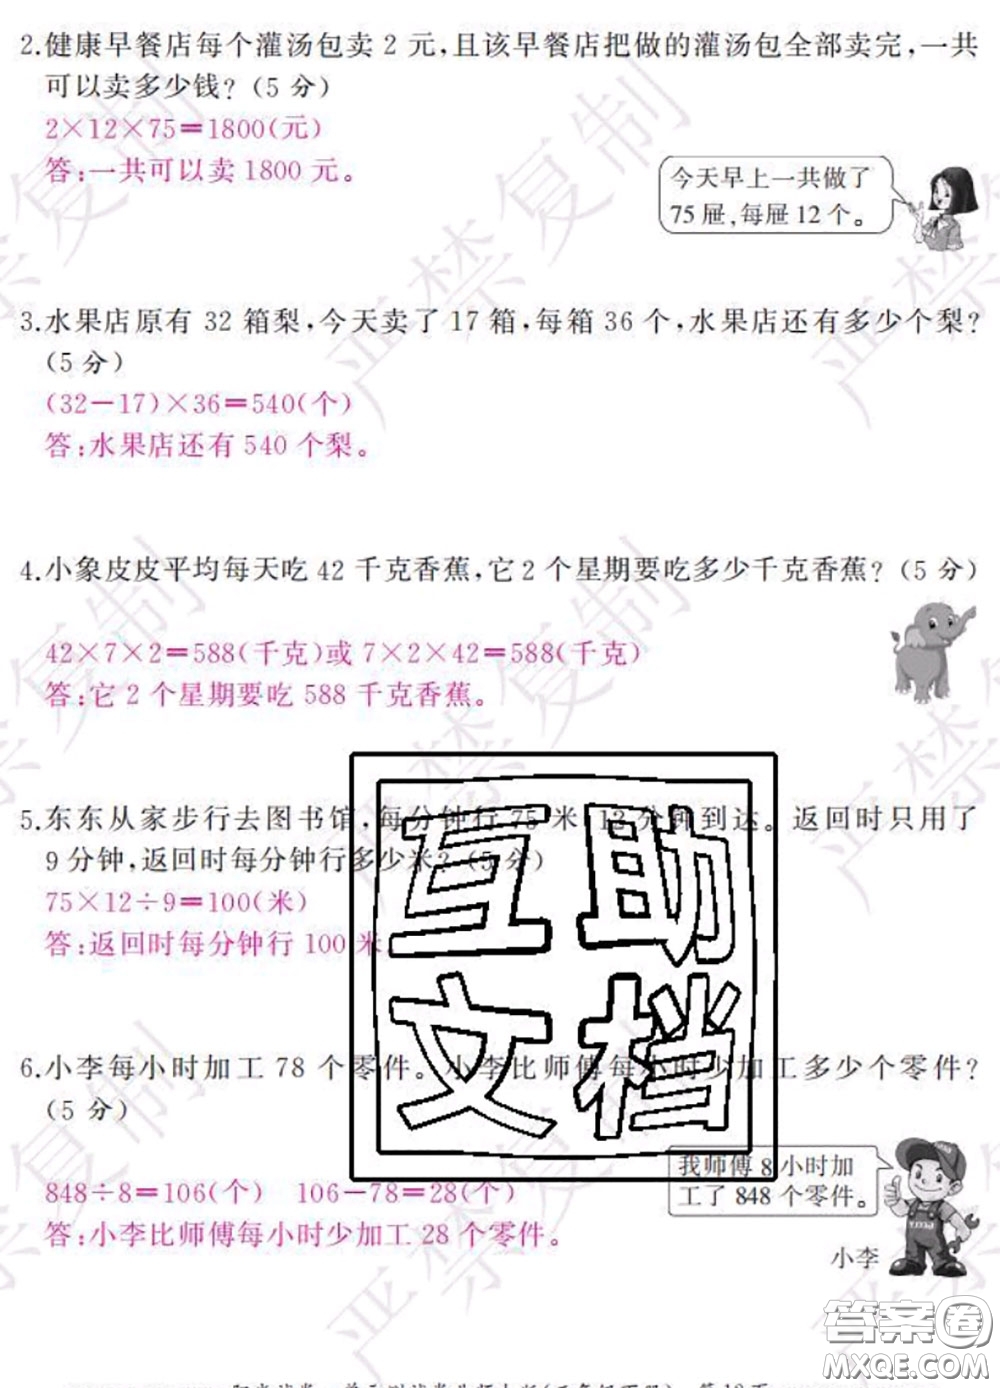 2.健康早餐店每个灌汤包卖 2 元,且该早餐店把做的灌汤包全部卖完,一共
可以卖多少钱?(5 分)
2×12×75=1800(元)
答:一共可以卖 1800 元。
今天早上一共做了
75 屉,每屉 12 个。
3.水果店原有 32 箱梨,今天卖了 17 箱,每箱 36 个,水果店还有多少个梨?
(5 分)
(32-17)×36=540(个)
答:水果店还有 540 个梨。
4.小象皮皮平均每天吃 42 千克香蕉,它 2 个星期要吃多少千克香蕉?(5 分)
42×7×2=588(千克)或 7×2×42=588(千克)
答:它 2 个星期要吃 588 千克香蕉。
5.东东从家步行去图书馆,每分钟行 75 米 分钟到达。返回时只用了
9 分钟,返回时每分钟行多少米?(5 分)
75×12÷9=100(米)
答:返回时每分钟行 100 米
互助
文档
6.小李每小时加工 78 个零件。小李比师傅每小时少加工多少个零件?
(5 分)
我师傅 8 小时加
工了 848 个零件。
848÷8=106(个) 106-78=28(个)
答:小李比师傅每小时少加工 28 个零件。
小李
严禁复制
答案圈
MXQE.COM